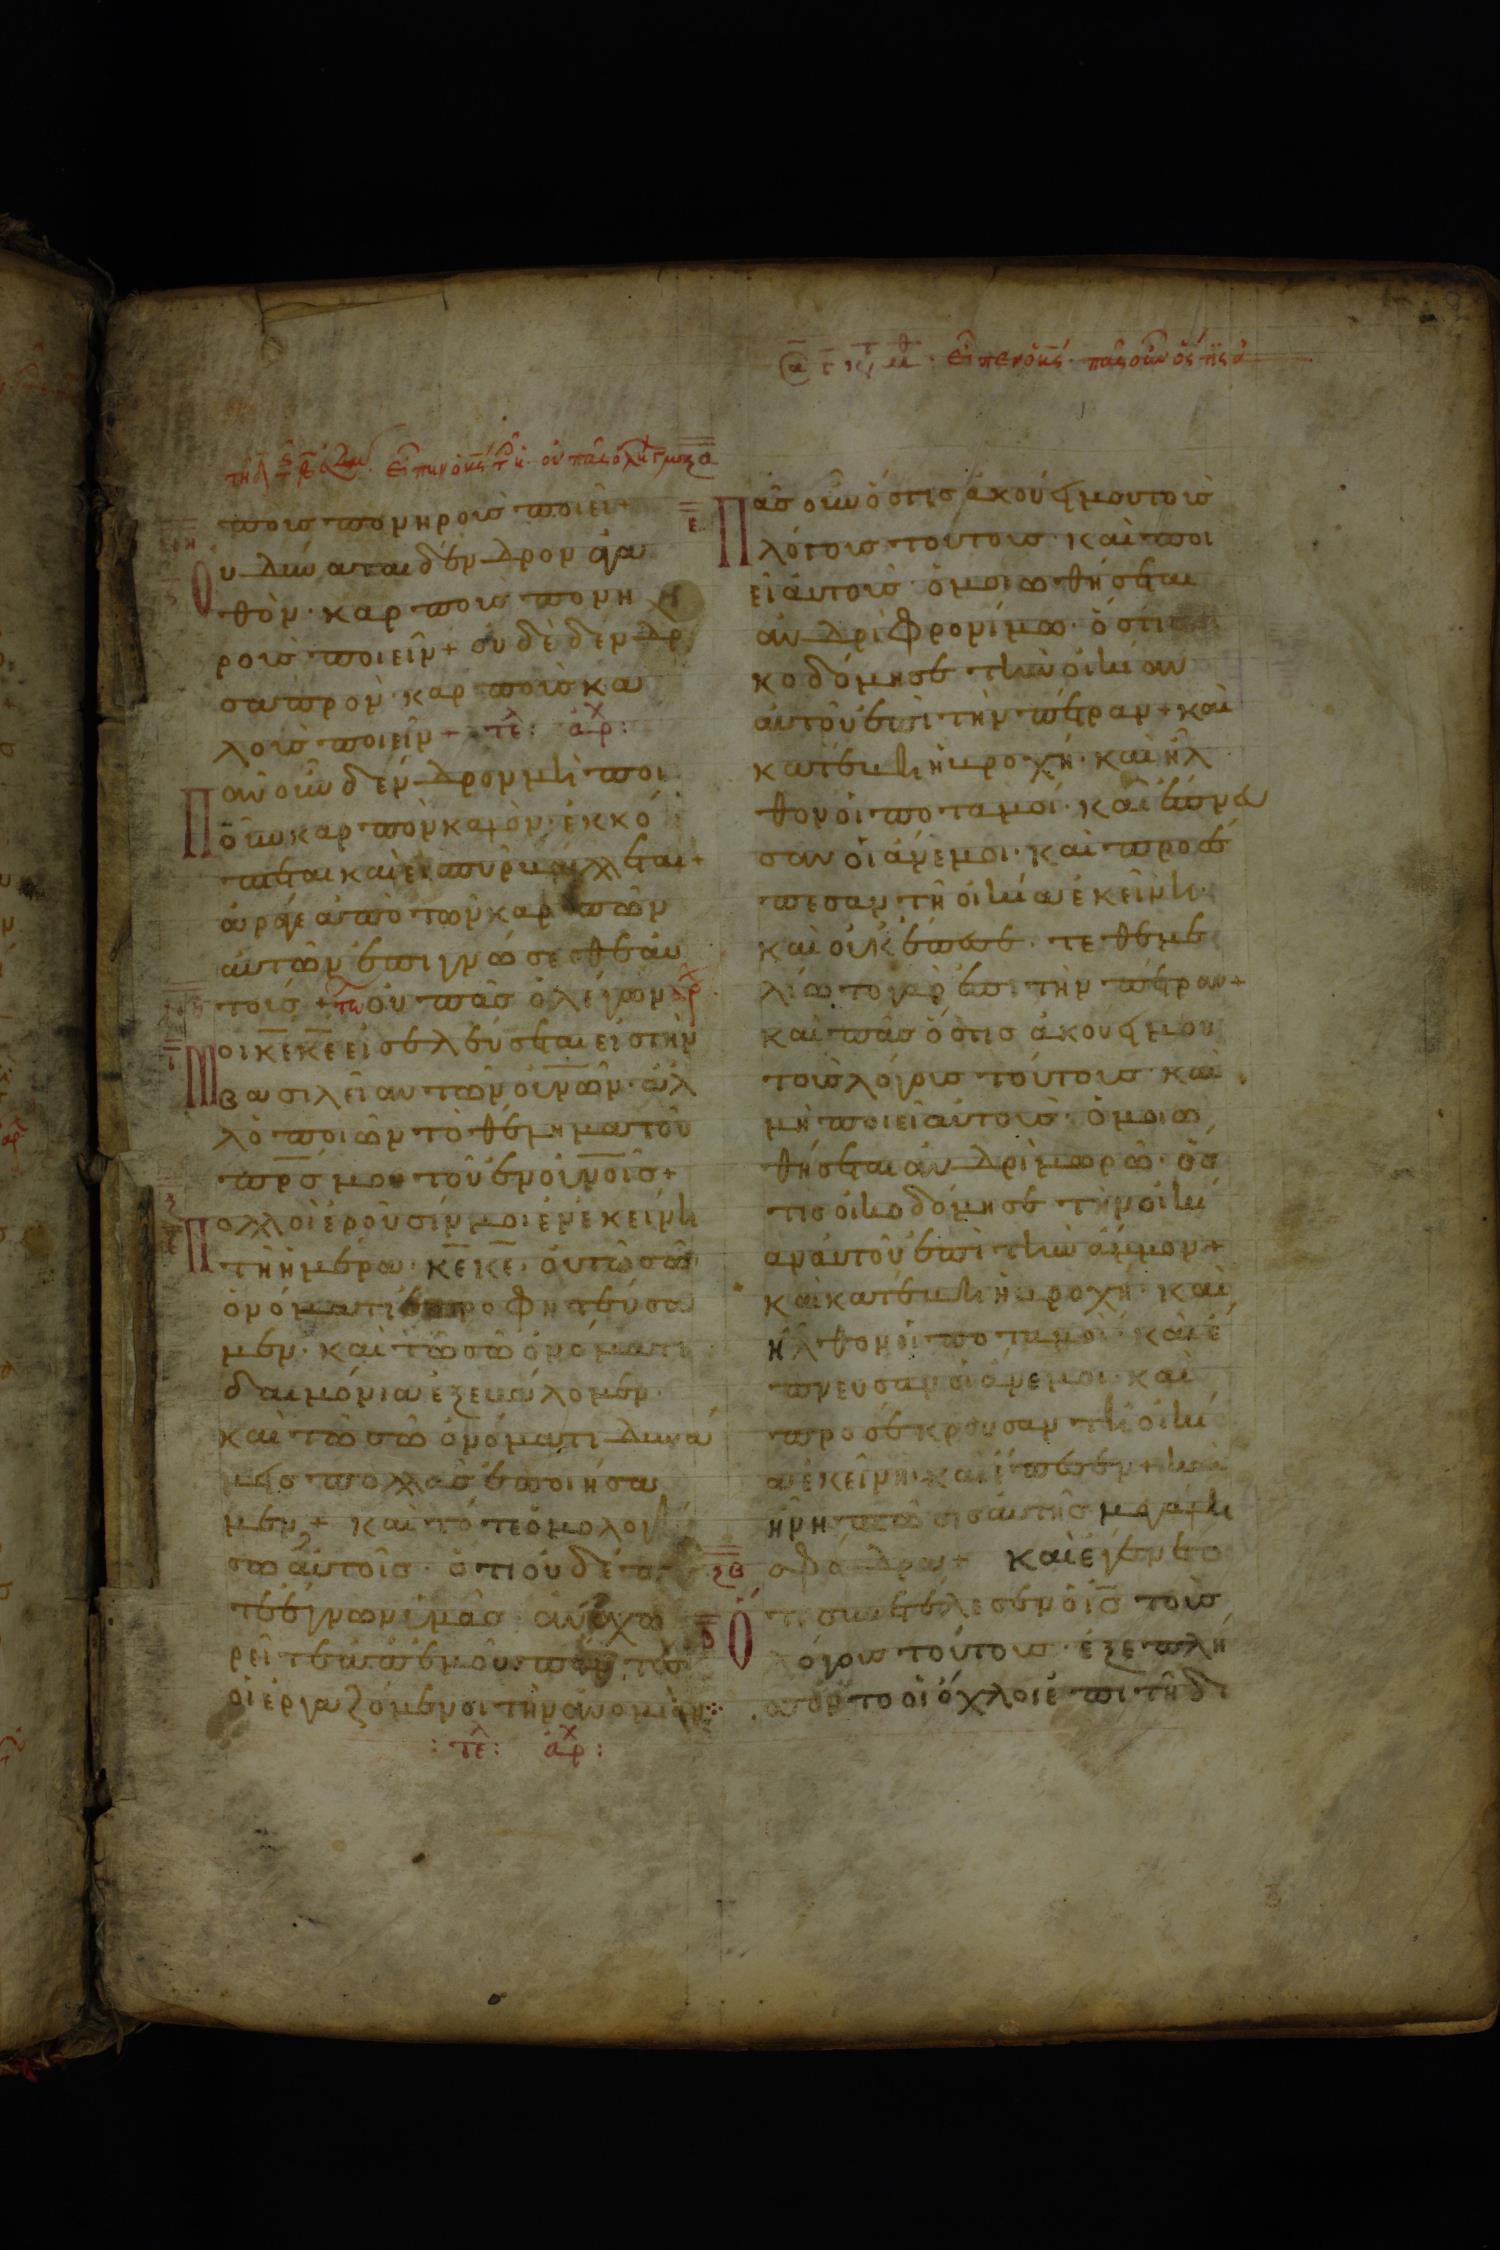 ποὺς πονηροὺς ποιεῖ+
Ου δύναται δένδρον ἀγα
θὸν· καρποὺς πονη
ροὺς ποιεῖν+ οὐδὲ δένδρ
σαπρὸν· καρποὺς κα
λοὺς ποιεῖν+ τελ: ἀρχ:
Παν οὖν δένδρον μὴ ποι
οῦν καρπὸν καλὸν· ἐκκό
πτεται καὶ εἰς πῦρ βάλλεται+
ἄραγε ἀπὸ τῶν καρπῶν
αὐτῶν ἐπιγνώσεσθε αὐ
τούς+ οὐ πᾶς ὁ λέγων
μοι κε κε εἰσελεύσεται εἰς τὴν
βασιλείαν τῶν οὐνῶν· ἀλ
λὸ ποιῶν τὸ θέλημα τοῦ
πρς μου τοῦ ἐν οὐνοῖς+
Πολλοὶ ἐροῦσίν μοι ἐν ἐκείνη
τῆ ἡμέρα· κε κε· οὐ τῶ σῶ
ὀνόματι προφητεύσα
μεν· καὶ τῶ σῶ ὀνόματι
δαιμόνια ἐξεβάλομεν·
καὶ τῶ σῶ ὀνόματι δυνά
μεις πολλὰς ἐποιήσα
μεν+ καὶ τότε ὁμολογή
σω αὐτοῖς· ὅτι οὐδέπο
τε ἔγνων ὑμᾶς· ἀποχω
ρεῖτε ἀπ' ἐμοῦ· πάντες
οἱ ἐργαζόμενοι τὴν ἀνομίαν
: τελ: ἀρχ:
Πᾶς οὖν ὅστις ἀκούει μου τοὺς
λόγους τούτους· καὶ ποι
εῖ αὐτούς· ὁμοιωθήσεται
ἀνδρὶ φρονίμω· ὅστις
κοδόμησε τὴν οἰκίαν
αὐτοῦ ἐπὶ τὴν πέτραν+ καὶ
κατέβη ἡ βροχή· καὶ ἦλ
θον οἱ ποταμοί· καὶ ἔπνευ
σαν οἱ ἄνεμοι· καὶ προσέ
πεσαν τῆ οἰκία ἐκείνη·
καὶ οὐκ ἔπεσε· τεθεμε
λίωτο γὰρ ἐπὶ τὴν πέτραν+
καὶ πᾶς ὅστις ἀκούει μου
τοὺς λόγους τούτους καὶ
μὴ ποιεῖ αὐτούς· ὁμοιω
θήσεται ἀνδρὶ μωρῶ· ὅσ
τις οἰκοδόμησε τὴν οἰκί
αν αὐτοῦ ἐπὶ τὴν ἄμμον+
καὶ κατέβη ἡ βροχή· καὶ
ἦλθον οἱ ποταμοὶ· καὶ ἔ
πνευσαν οἱ ἄνεμοι· καὶ
προσέκρουσαν τῆ οἰκί
α ἐκείνη· καὶ ἔπεσεν+ καὶ
ἦν ἡ πτῶσις αὐτῆς μεγάλη
σφόδρα+ καὶ ἐγένετο
Ὅτε συνετέλεσεν ὁ ις τοὺς
λόγους τούτους· ἐξεπλή
σσοντο οἱ ὄχλοι ἐπὶ τῆ δι